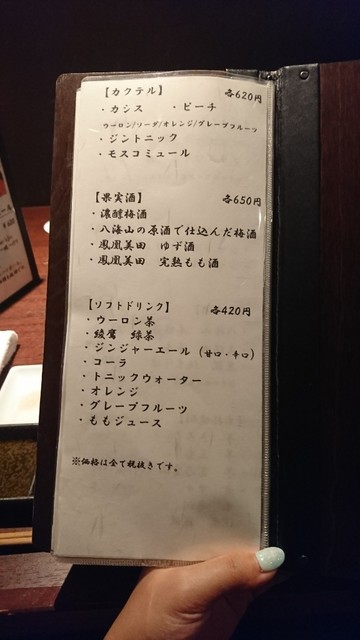 【カクテル】 各620円
・カシス ・ピーチ
ウーロン/ソーダ/オレンジ/グレープフルーツ
・ジントニック
・モスコミュール
【果実酒】 各650円
・濃醇梅酒
・八海山の原酒で仕込んだ梅酒
・鳳凰美田 ゆず酒
・鳳凰美田 完熟もも酒
【ソフトドリンク】 各420円
・ウーロン茶
・綾鷹 緑茶
・ジンジャーエール (甘口・辛口)
・コーラ
・トニックウォーター
・オレンジ
・グレープフルーツ
・ももジュース
※価格は全て税抜きです。